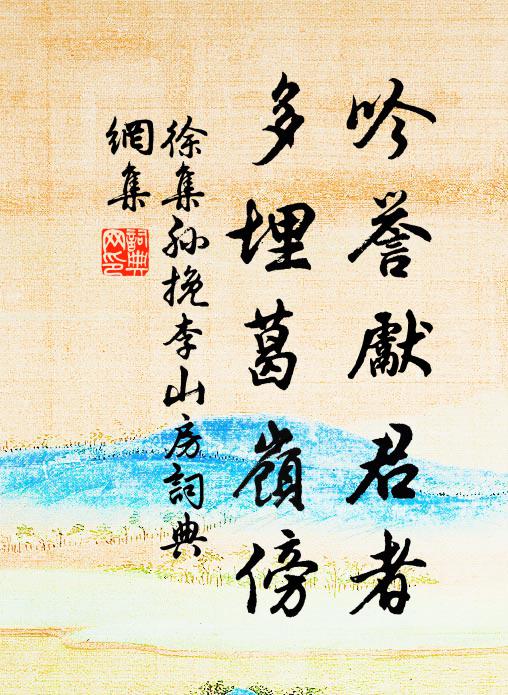 吟譽獻君者
多埋葛嶺傍
徐集孙挽李山房詞典
網集
詞典
网印